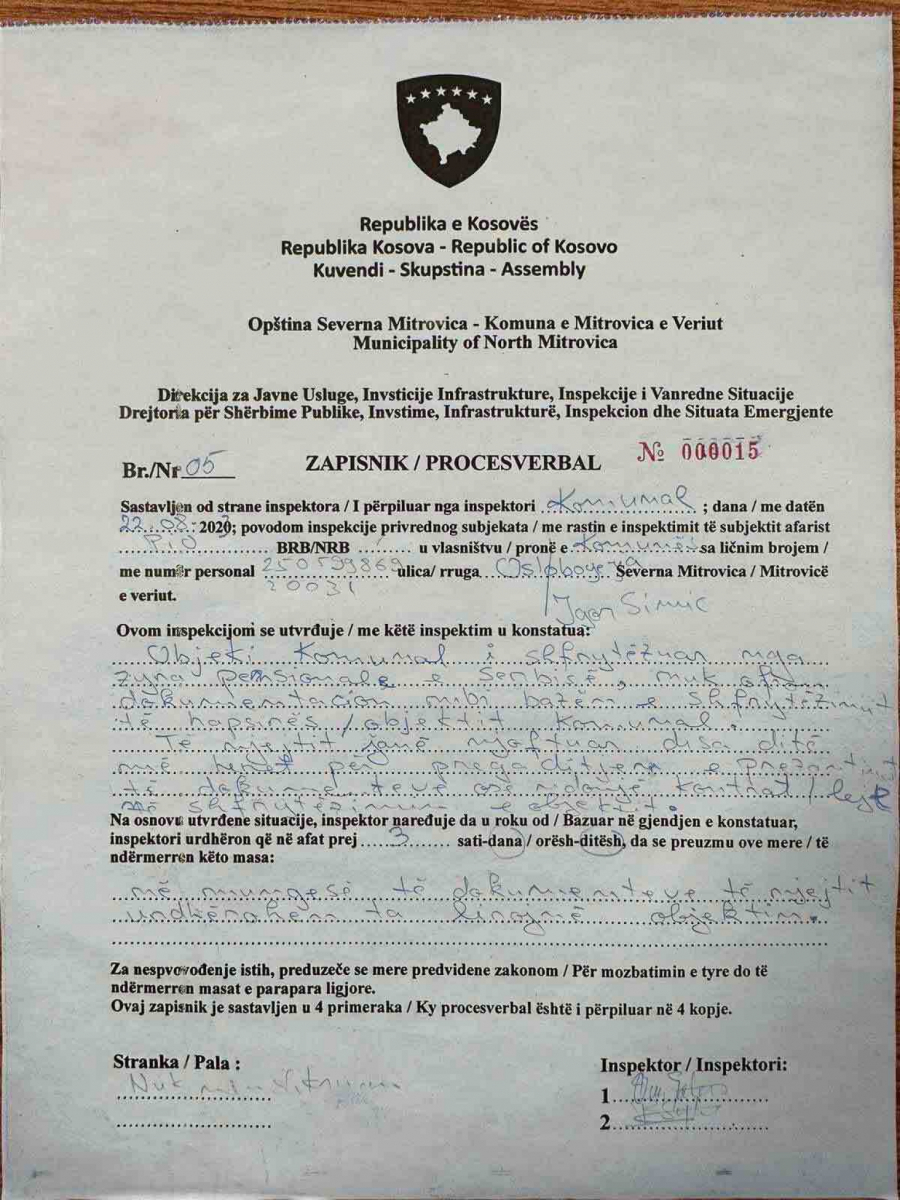 Republika e Kosovës
Republika Kosova - Republic of Kosovo
Kuvendi - Skupstina - Assembly
Opština Severna Mitrovica - Komuna e Mitrovica e Veriut
Municipality of North Mitrovica
Direkcija za Javne Usluge, Invsticije Infrastrukture, Inspekcije i Vanredne Situacije
Drejtoria për Shërbime Publike, Invstime, Infrastrukturë, Inspekcion dhe Situata Emergjente
Br./Nr 05 ZAPISNIK / PROCESVERBAL № 000015
Sastavljen od strane inspektora / I përpiluar nga inspektori Komunal ; dana / me datën
22.08.2023; povodom inspekcije privrednog subjekata / me rastin e inspektimit të subjektit afarist
P.i.O BRB/NRB / u vlasništvu / pronë e Komunës sa ličnim brojem /
me numër personal ulica/ rruga Severna Mitrovica / Mitrovicë
e veriut. Igor Simic
Ovom inspekcijom se utvrđuje / me këtë inspektim u konstatua:
Objekti Komunal i shfrytëzuar nga
zyra pensionale e Serbisë, nuk
dokumentacion mbi bazën e shfrytëzimit
të hapsinës / objektit Komunal.
Të njejtit janë njoftuar disa ditë
më për e
të dokumenteve ose ndonjë kontrat / leje
shfrytëzimin e objektit.
Na osnovu utvrđene situacije, inspektor naređuje da u roku od / Bazuar në gjendjen e konstatuar,
inspektori urdhëron që në afat prej 3 sati-dana / orësh-ditësh, da se preuzmu ove mere / të
ndërmerren këto masa:
në mungesë të dokumenteve të njejtit
ta objektin.
Za nespvovođenje istih, preduzeče se mere predvidene zakonom / Për mozbatimin e tyre do të
ndërmerren masat e parapara ligjore.
Ovaj zapisnik je sastavljen u 4 primeraka / Ky procesverbal është i përpiluar në 4 kopje.
Stranka / Pala :
Inspektor / Inspektori:
Nuk
1
2